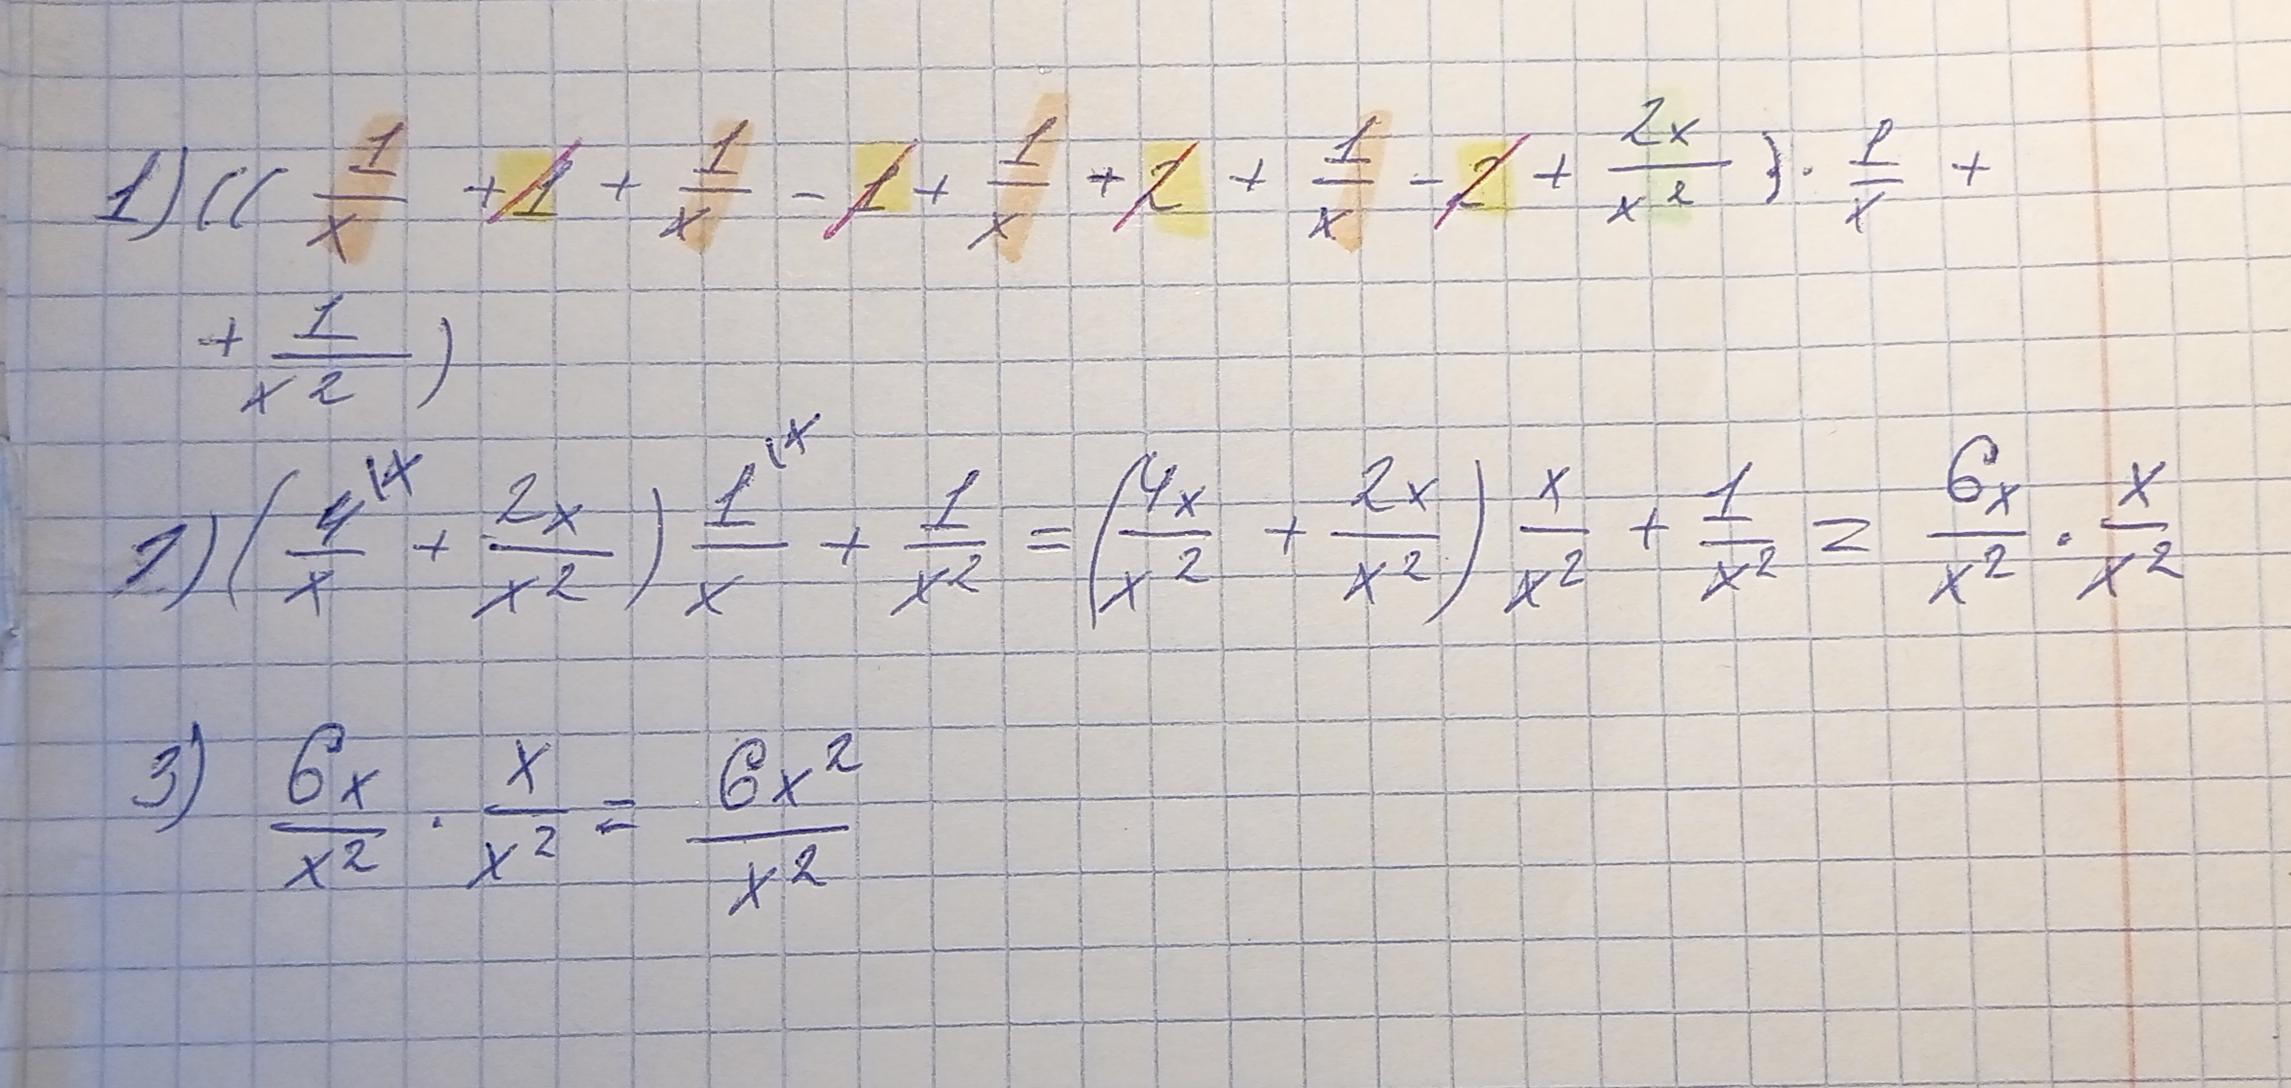 1) (( 1/x + 1 + 1/x - 1 + 1/x + 2 + 1/x - 2 + 2x/x² ) · 1/x +
+ 1/x² )
2) ( 4/x |x + 2x/x² ) 1/x |x + 1/x² = ( 4x/x² + 2x/x² ) x/x² + 1/x² = 6x/x² · x/x²
3) 6x/x² · x/x² = 6x²/x²